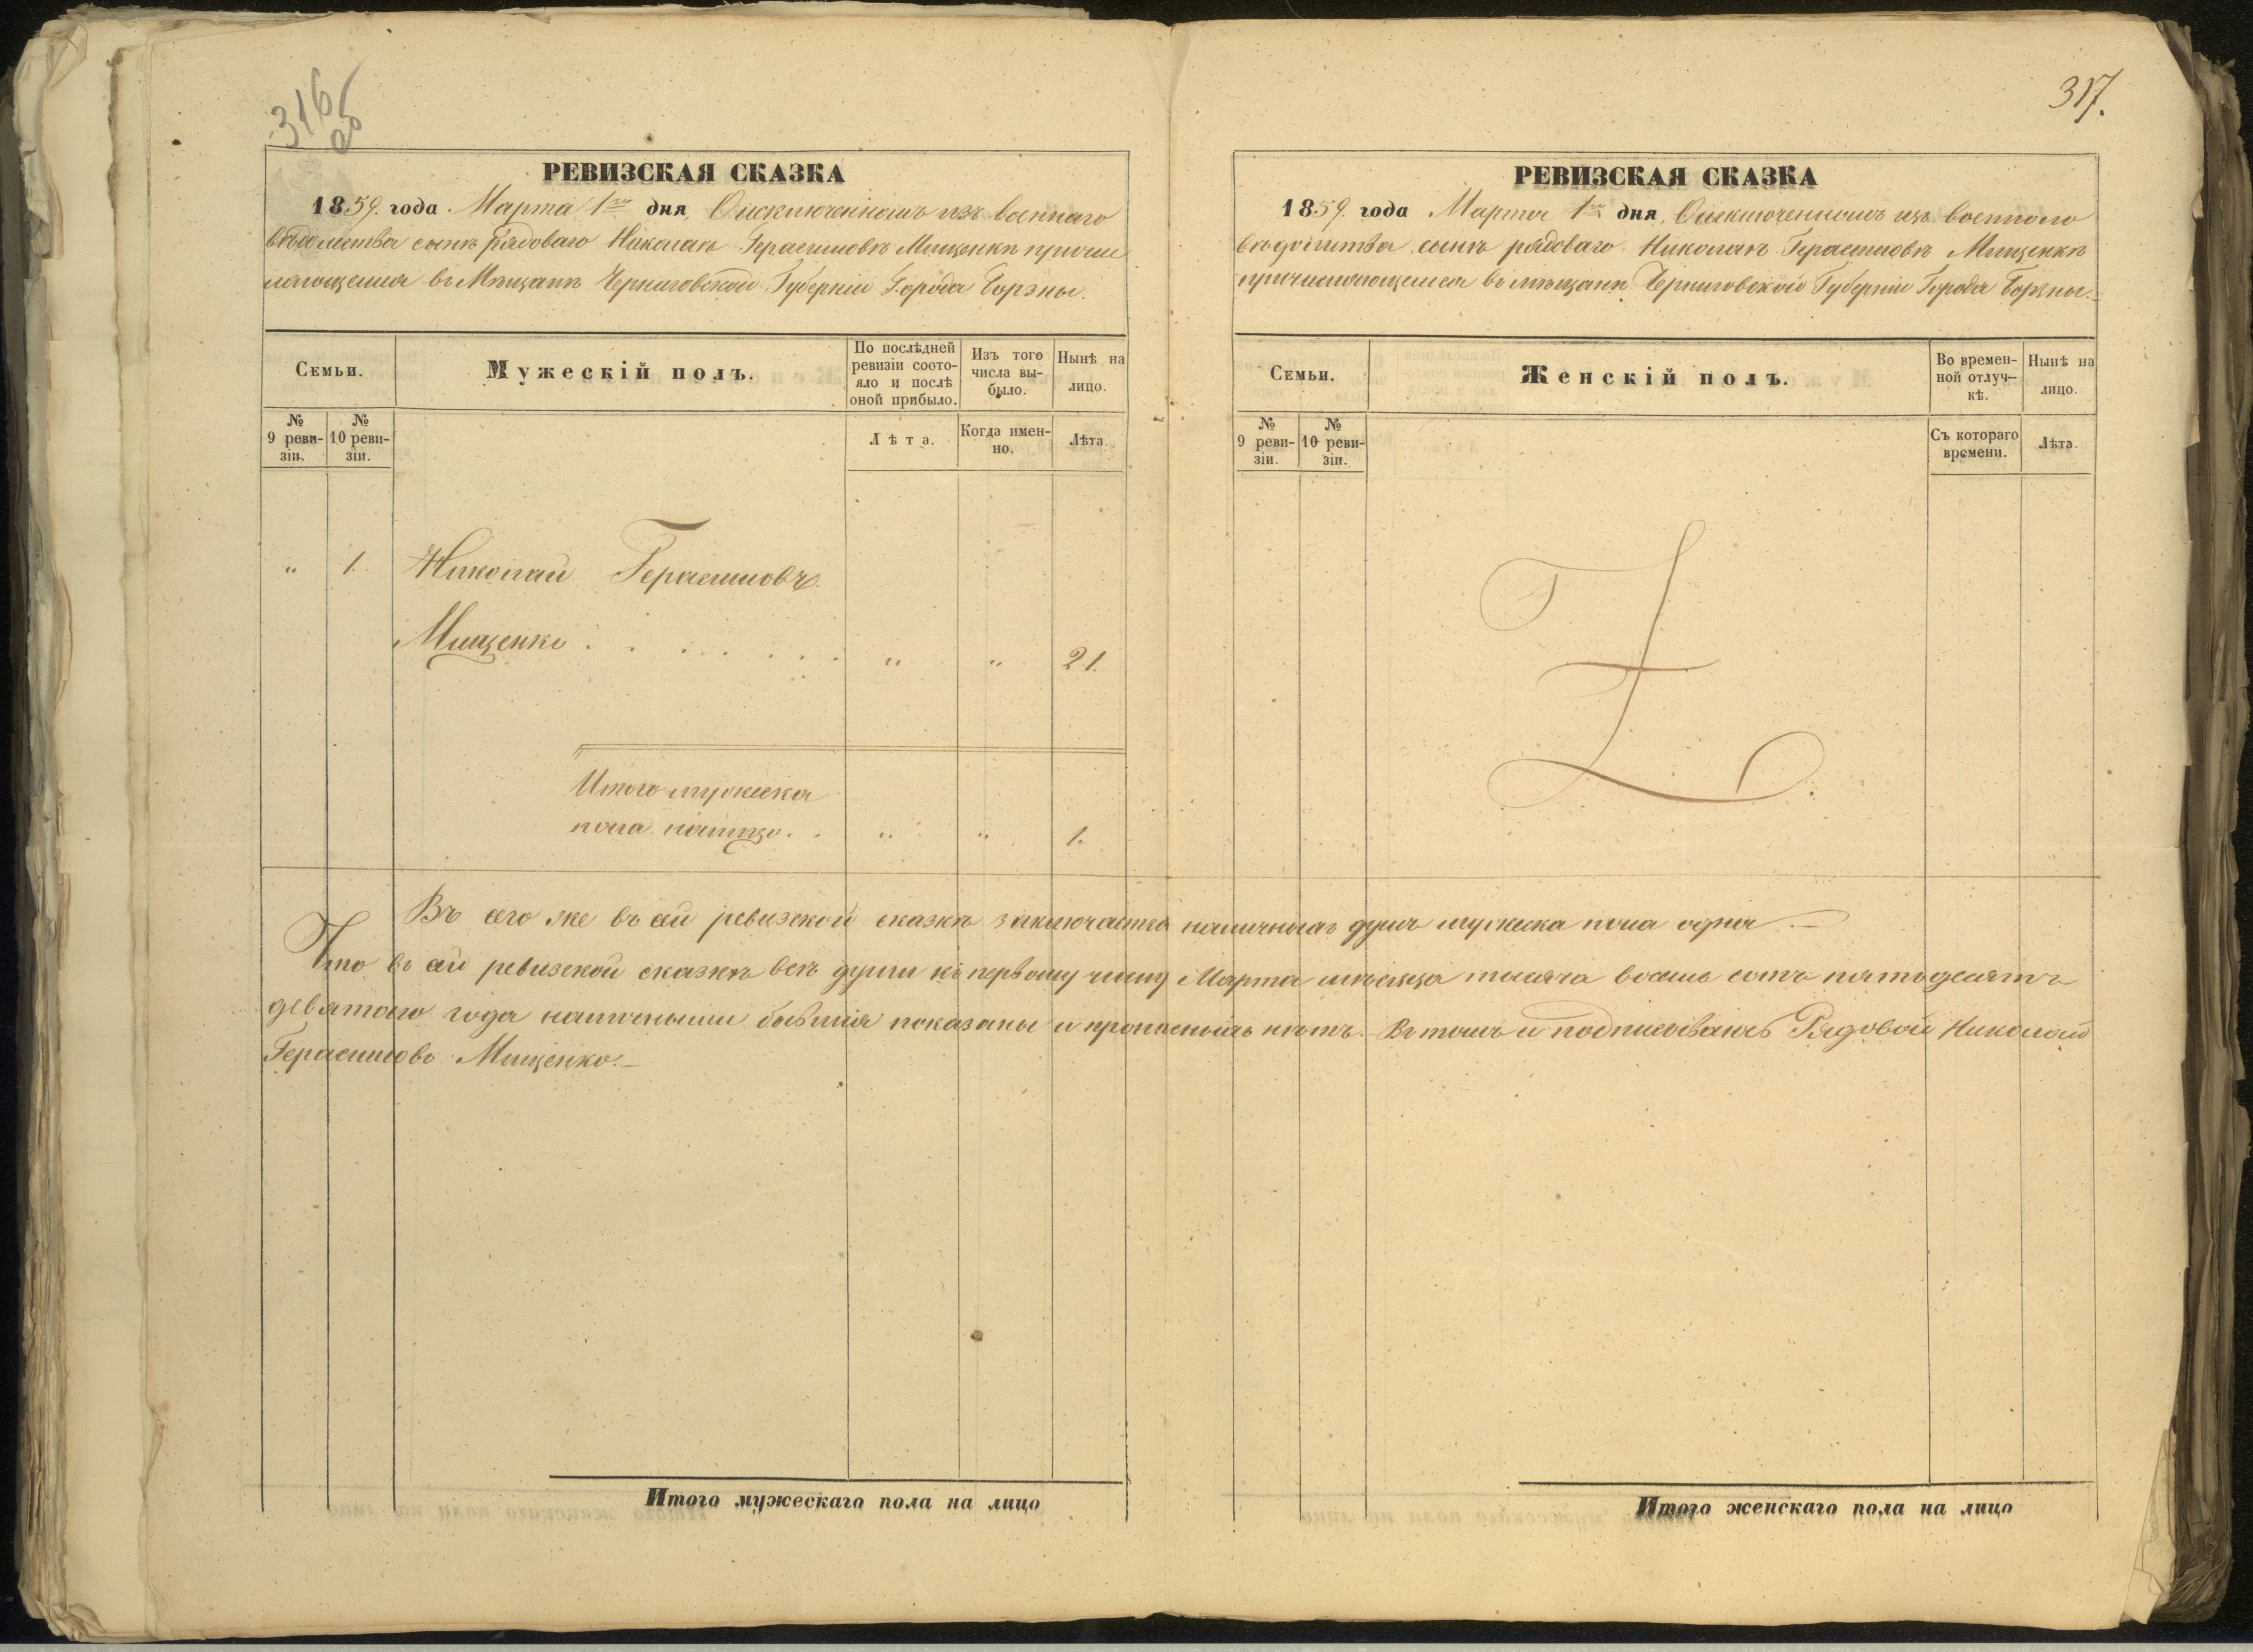 316
об
РЕВИЗСКАЯ СКАЗКА
1859. года Марта 1го дня, О исключенномъ изъ военнаго
вѣдомства сынѣ рядоваго Николаѣ Герасимовѣ Мищенкѣ причис
ляющемся въ Мѣщане Черниговской Губерніи Города Борзны.
Семьи.
Мужескій полъ.
По послѣдней ревизіи состо-
яло и послѣ оной прибыло.
Изъ того числа вы-
было.
Нынѣ на лицо.
№ 9 реви-
зіи.
№ 10 реви-
зіи.
Лѣта.
Когда имен-
но.
Лѣта.
„ 1. Николай Герасимовъ
Мищенко . . . . . . . „ „ 21.
Итого мужеска
пола налицо . . „ „ 1.
317.
РЕВИЗСКАЯ СКАЗКА
1859. года Марта 1го дня, О исключенномъ изъ военного
вѣдомства сынѣ рядоваго Николаѣ Герасимовѣ Мищенкѣ
причисляющемся въ мѣщане Черниговской Губерніи Города Борзны.
Семьи.
Женскій полъ.
Во времен-
ной отлуч-
кѣ.
Нынѣ на лицо.
№ 9 реви-
зіи.
№ 10 реви-
зіи.
Съ котораго времени.
Лѣта.
Въ сего же въ сей ревизской сказкѣ заключается наличныхъ душъ мужеска пола одна
Что въ сей ревизской сказкѣ всѣ души къ первому числу Марта мѣсяца тысяча восемь сотъ пятьдесятъ
девятого года наличными бывшія показаны и прописныхъ нѣтъ. Въ томъ и подписываюсь Рядовой Николай
Герасимовъ Мищенко.
Итого мужескаго пола на лицо
Итого женскаго пола на лицо